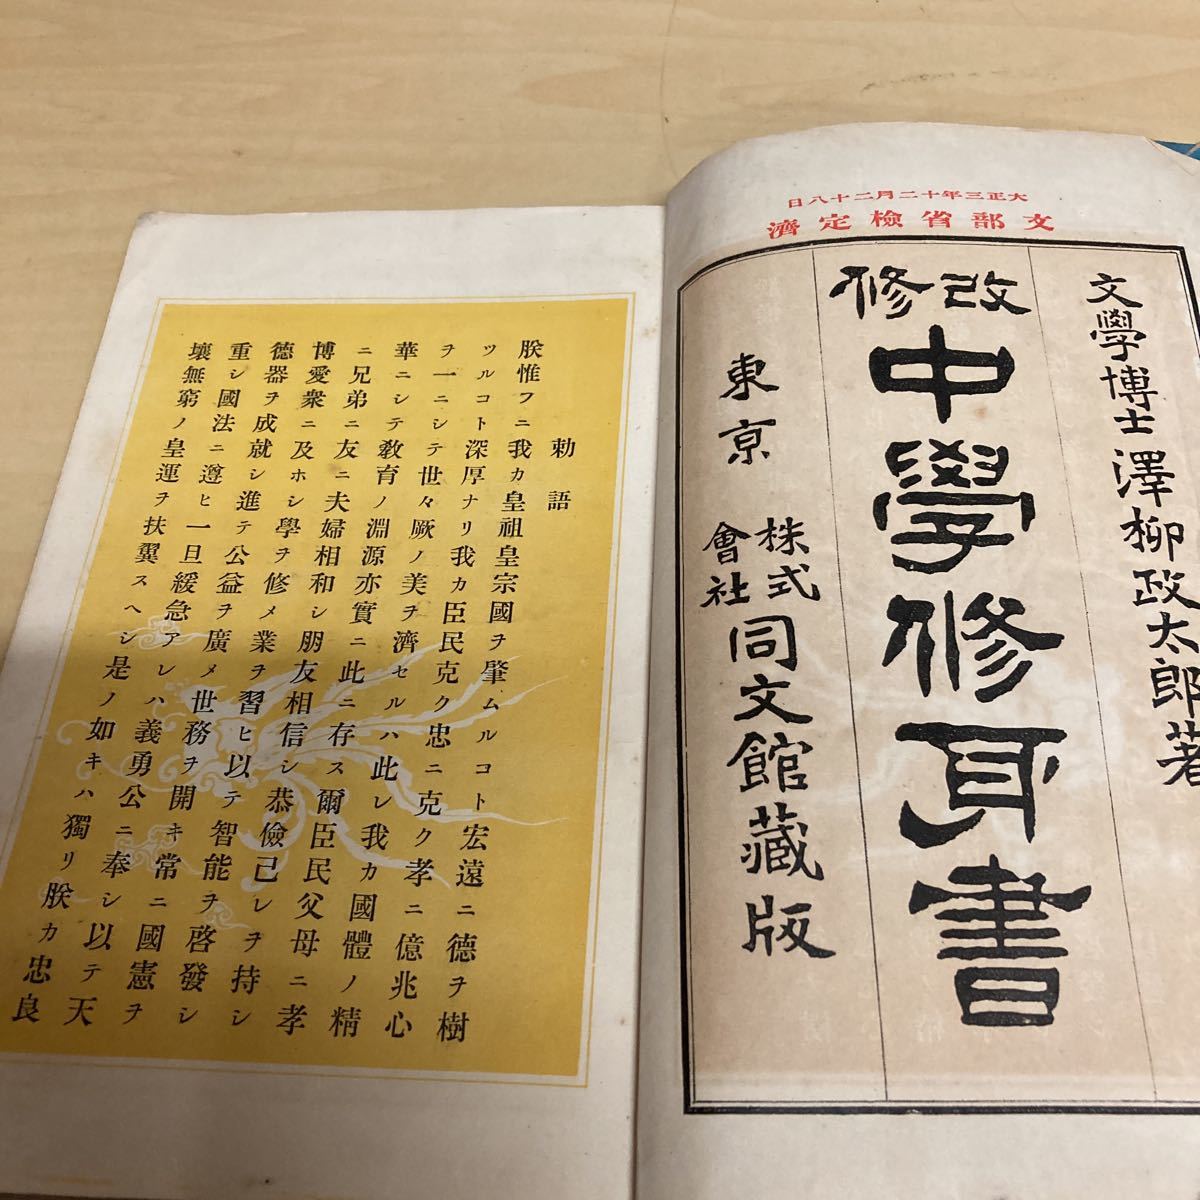 大正三年十二月二十八日
文部省檢定濟
文學博士澤柳政太郎著
改修
中學修身書
東京
株式
會社
同文館藏版
勅語
朕惟フニ我カ皇祖皇宗國ヲ肇ムルコト宏遠ニ德ヲ樹
ツルコト深厚ナリ我カ臣民克ク忠ニ克ク孝ニ億兆心
ヲ一ニシテ世々厥ノ美ヲ濟セルハ此レ我カ國體ノ精
華ニシテ敎育ノ淵源亦實ニ此ニ存ス爾臣民父母ニ孝
ニ兄弟ニ友ニ夫婦相和シ朋友相信シ恭儉己レヲ持シ
博愛衆ニ及ホシ學ヲ修メ業ヲ習ヒ以テ智能ヲ啓發シ
德器ヲ成就シ進テ公益ヲ廣メ世務ヲ開キ常ニ國憲ヲ
重シ國法ニ遵ヒ一旦緩急アレハ義勇公ニ奉シ以テ天
壤無窮ノ皇運ヲ扶翼スヘシ是ノ如キハ獨リ朕カ忠良